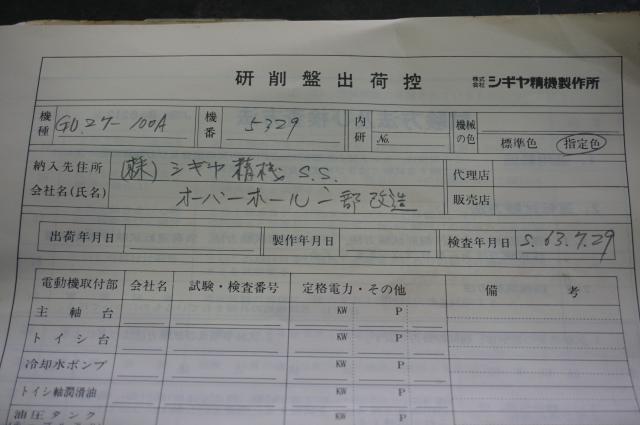 研削盤出荷控 株式会社 シギヤ精機製作所
機種 GU.27-100A 機番 5329 内研 No. 機械の色 標準色 指定色
納入先住所 (株)シギヤ精機 S.S. 代理店
会社名(氏名) オーバーホール 一部改造 販売店
出荷年月日 製作年月日 検査年月日 S.63.7.29
電動機取付部 会社名 試験・検査番号 定格電力・その他 備考
主軸台 KW P
トイシ台 KW P
冷却水ポンプ KW P
トイシ軸潤滑油 KW P
油圧タンク KW P